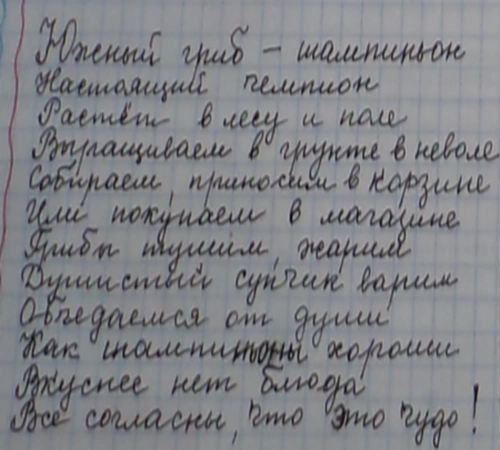 Южный гриб – шампиньон
Настоящий чемпион
Растёт в лесу и поле
Выращиваем в грунте в неволе
Собираем, приносим в корзине
Или покупаем в магазине
Грибы тушим, жарим
Душистый супчик варим
Объедаемся от души
Как шампиньоны хороши
Вкуснее нет блюда
Все согласны, что это чудо!